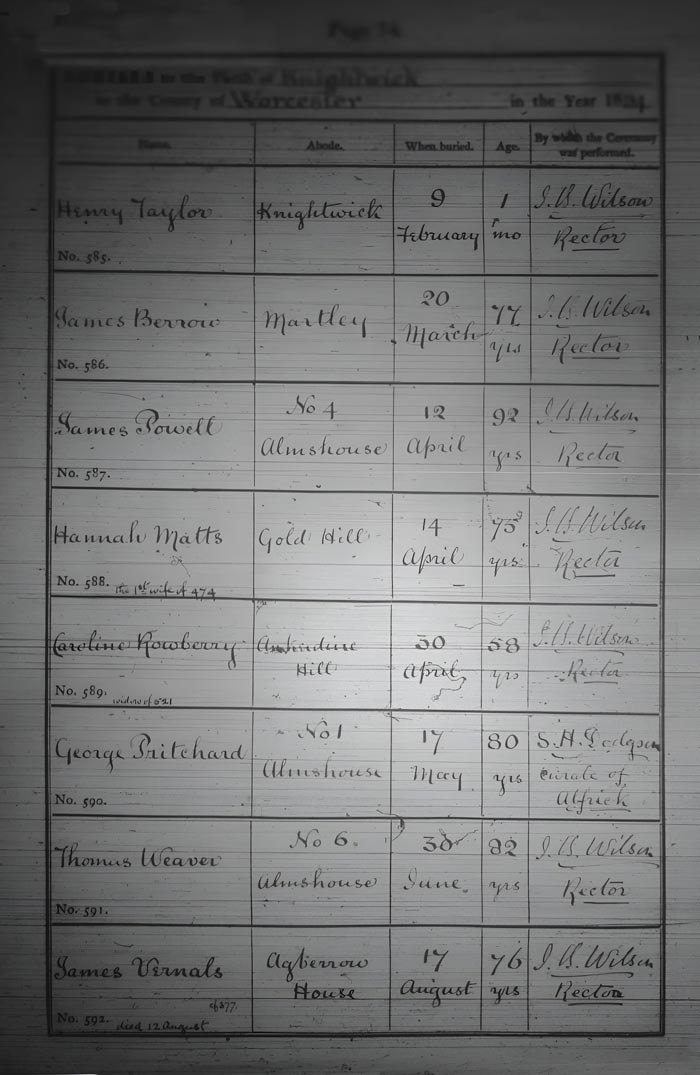 Page 74
BURIALS in the Parish of Knightwick
in the County of Worcester in the Year
Name. Abode. When buried. Age. By whom the Ceremony was performed.
Henry Taylor Knightwick 9 1 J. B. Wilson
February mo Rector
No. 585.
James Berrow Martley 20 77 J. B. Wilson
March yrs Rector
No. 586.
James Powell No 4 12 92 J. B. Wilson
Almshouse April yrs Rector
No. 587.
Hannah Matts Gold Hill 14 75 J. B. Wilson
April yrs Rector
No. 588. the 1st wife of 474
Caroline Rowberry 30 58 J. B. Wilson
Hill April yrs Rector
No. 589. widow of 521
George Pritchard No 1 17 80 S. H. Dodgson
Almshouse May yrs curate of
Alfrick
No. 590.
Thomas Weaver No 6. 30 82 J. B. Wilson
Almshouse June. yrs Rector
No. 591.
James Vernals Agberrow 17 76 J. B. Wilson
House August yrs Rector
of 377.
No. 592. died 12 August